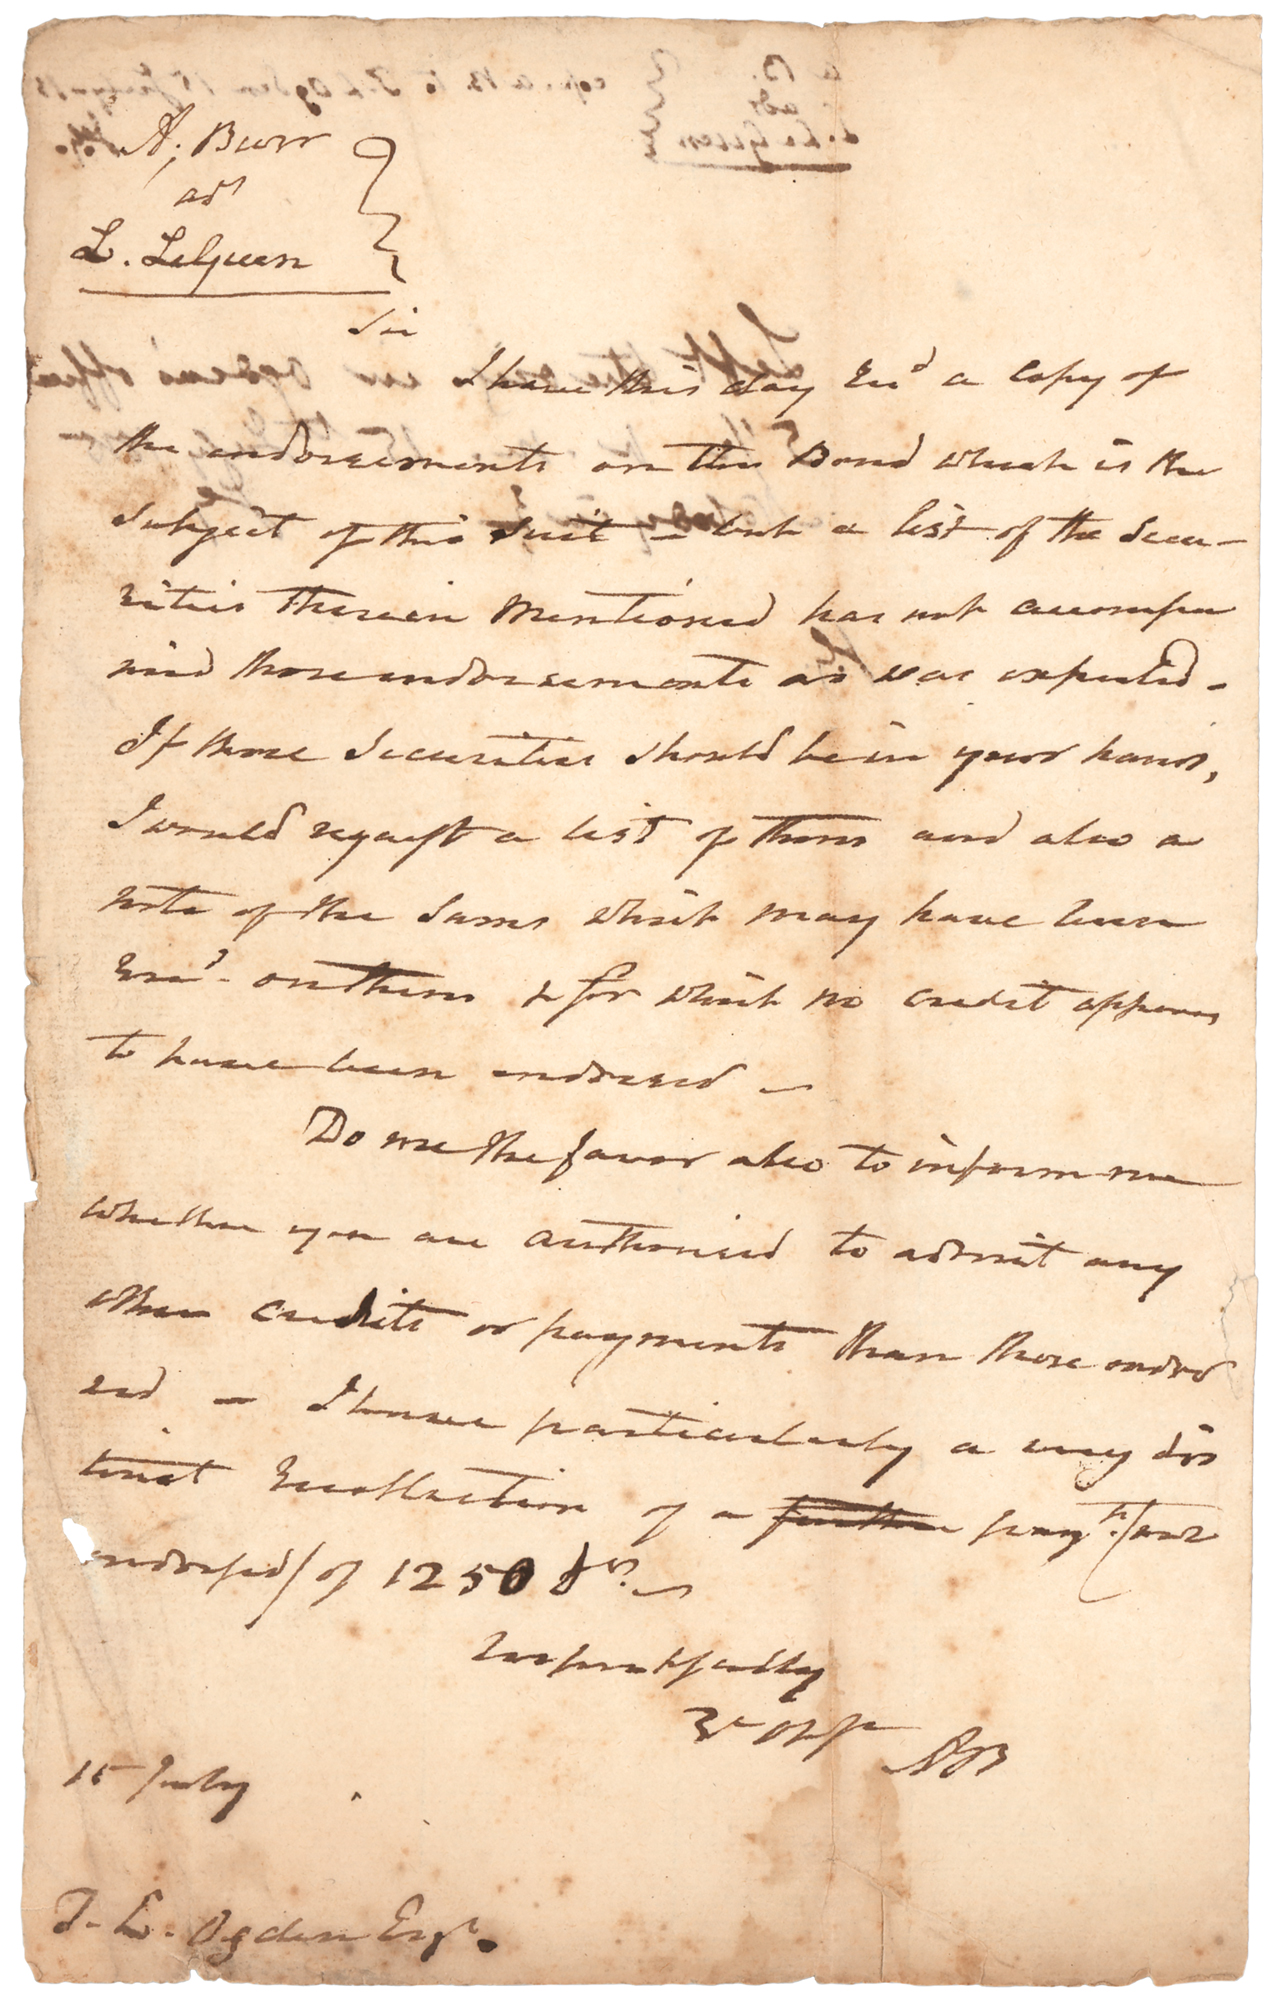 A. Burr
ads
L. LeGuen
Sir
I have this day recd a copy of
the endorsements on the Bond which is the
subject of this suit – but a list of the Secu-
rities therein Mentioned has not accompa
nied those endorsements as was expected –
If those Securities should be in your hands,
I would request a list of them and also a
note of the sums which may have been
recd. on them & for which no credit appears
to have been endorsed –
Do me the favor also to inform me
whether you are authorised to admit any
other credits or payments than those endor
sed – I have particularly a very dis
tinct recollection of a further payt. (not
endorsed) of 1250 drs. –
respectfully
AB
15 July
T. L. Ogden Esqr.